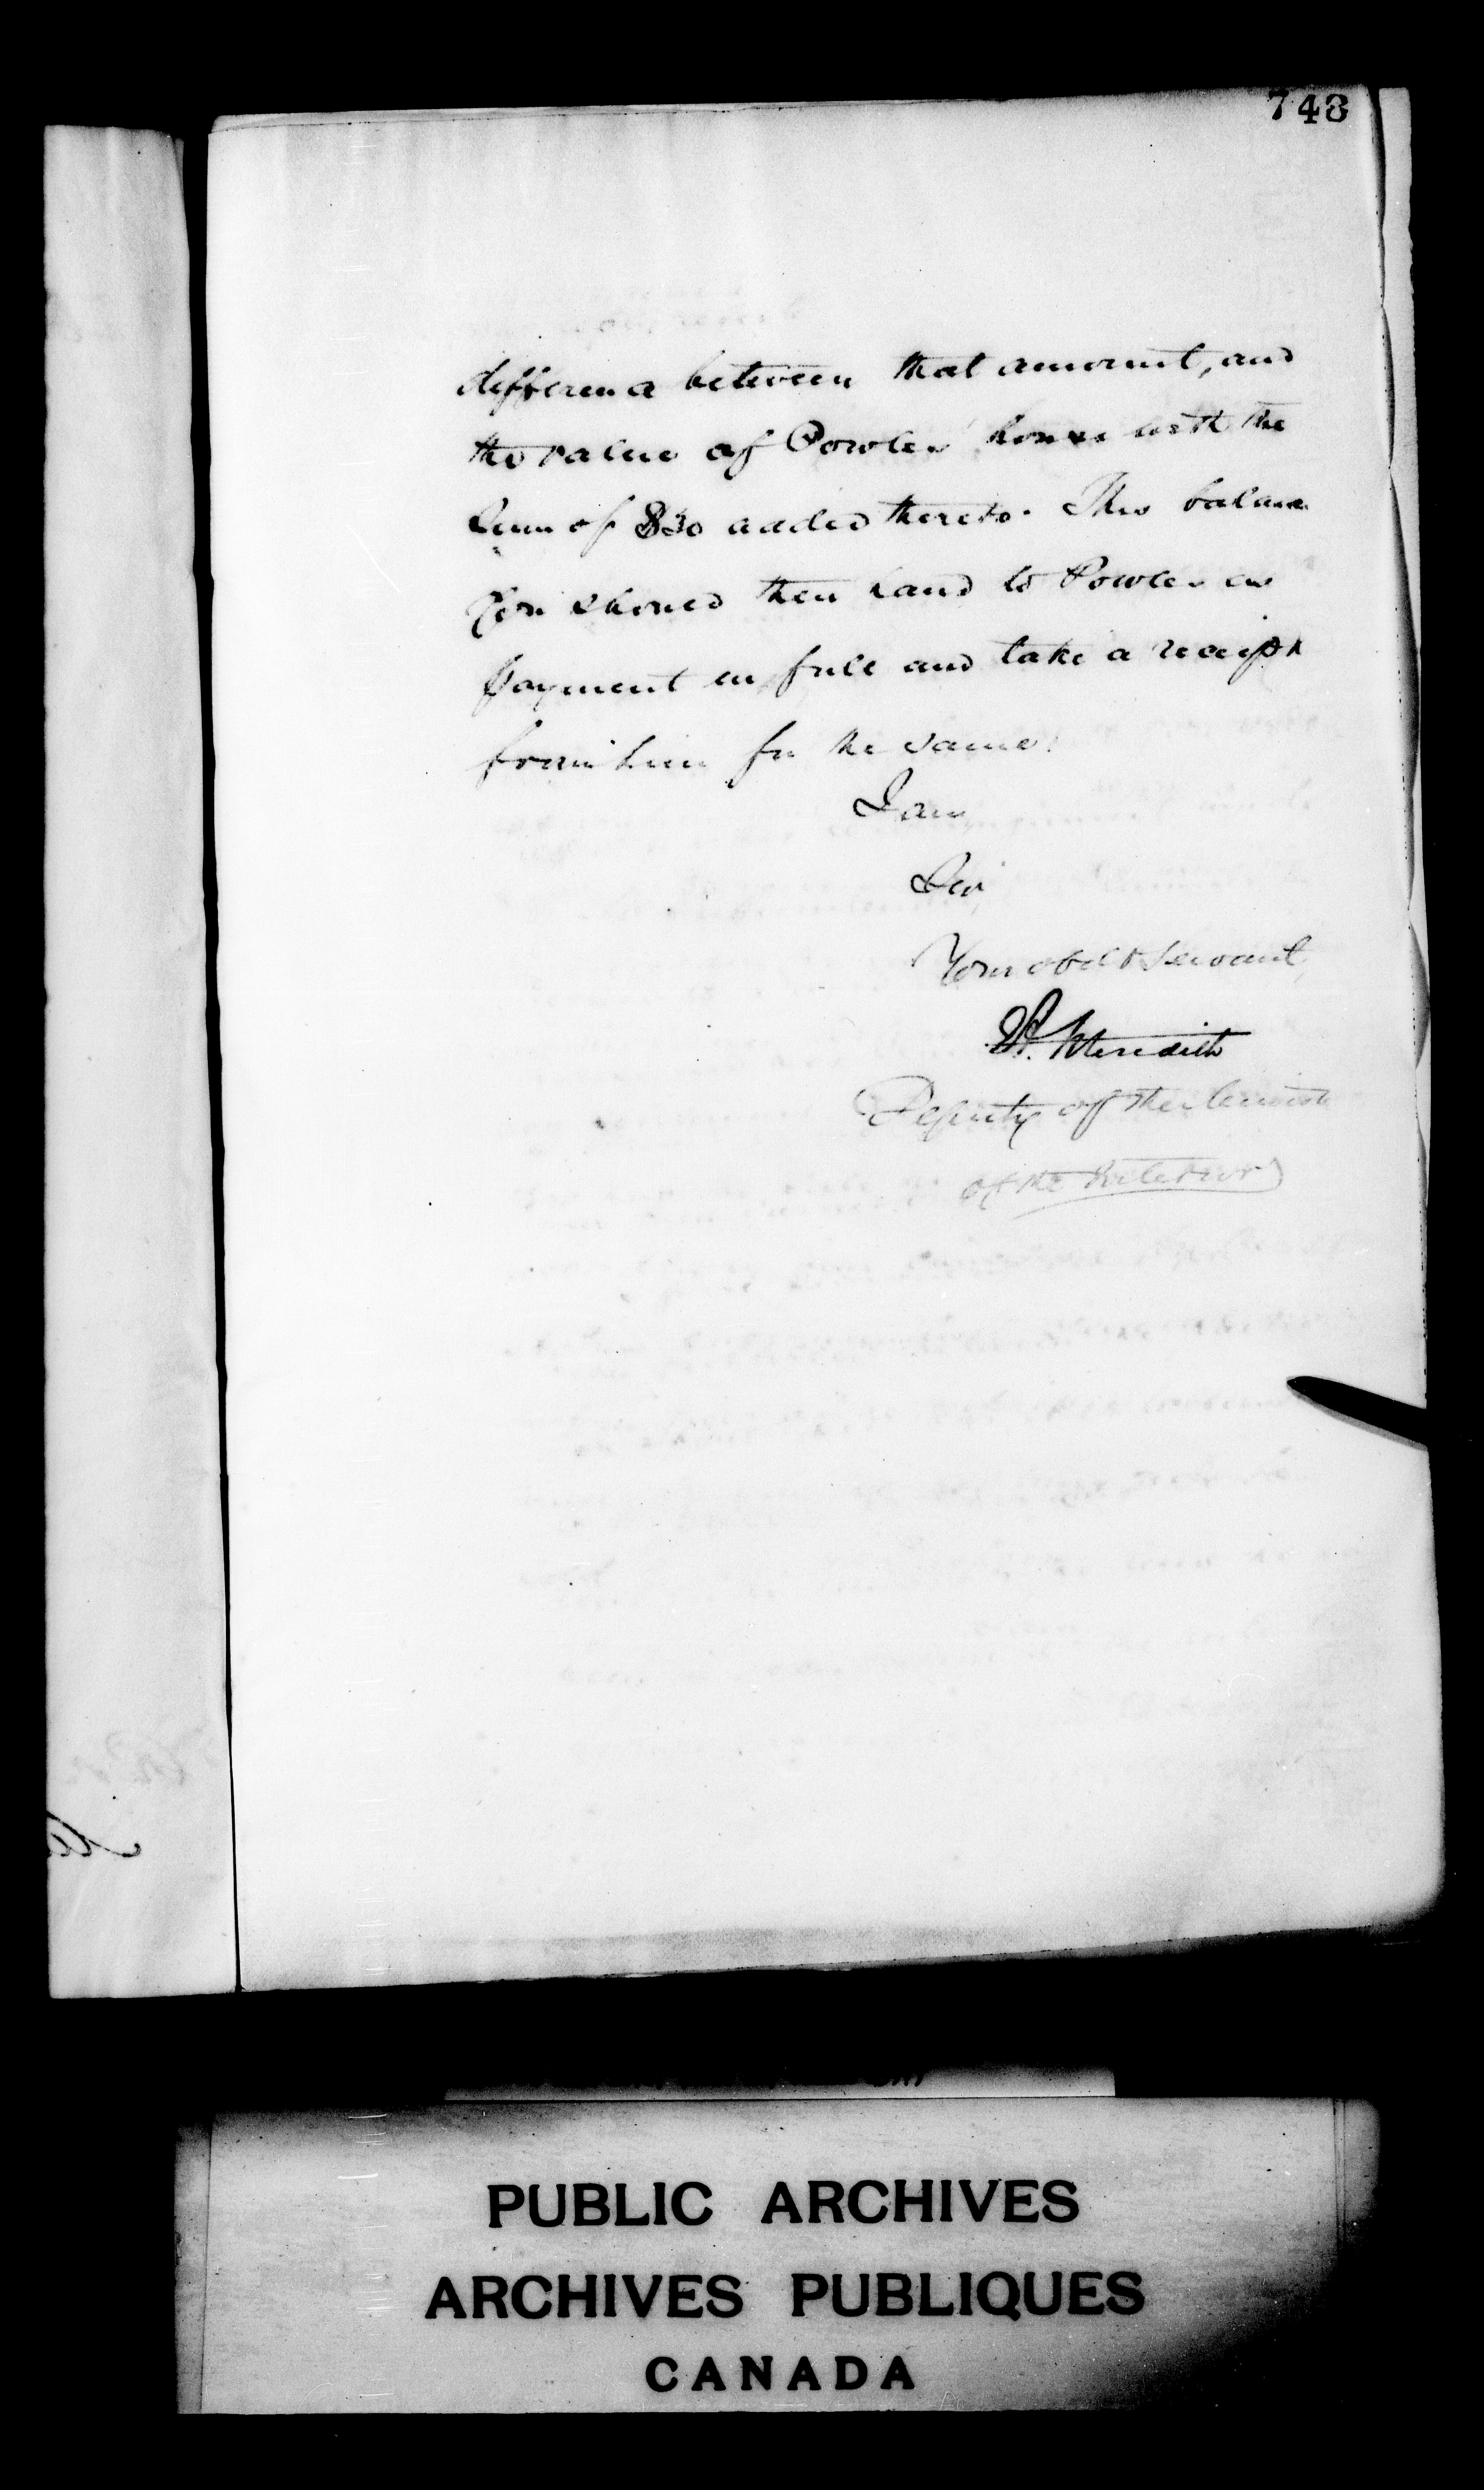 748
difference between that amount, and
the value of Powles house with the
sum of $30 added thereto. This balance
you should then hand to Powles as
payment in full and take a receipt
from him for the same.
I am
Sir
Your obedt Servant,
Meredith
Deputy of the Minister
of the Interior
PUBLIC ARCHIVES
ARCHIVES PUBLIQUES
CANADA